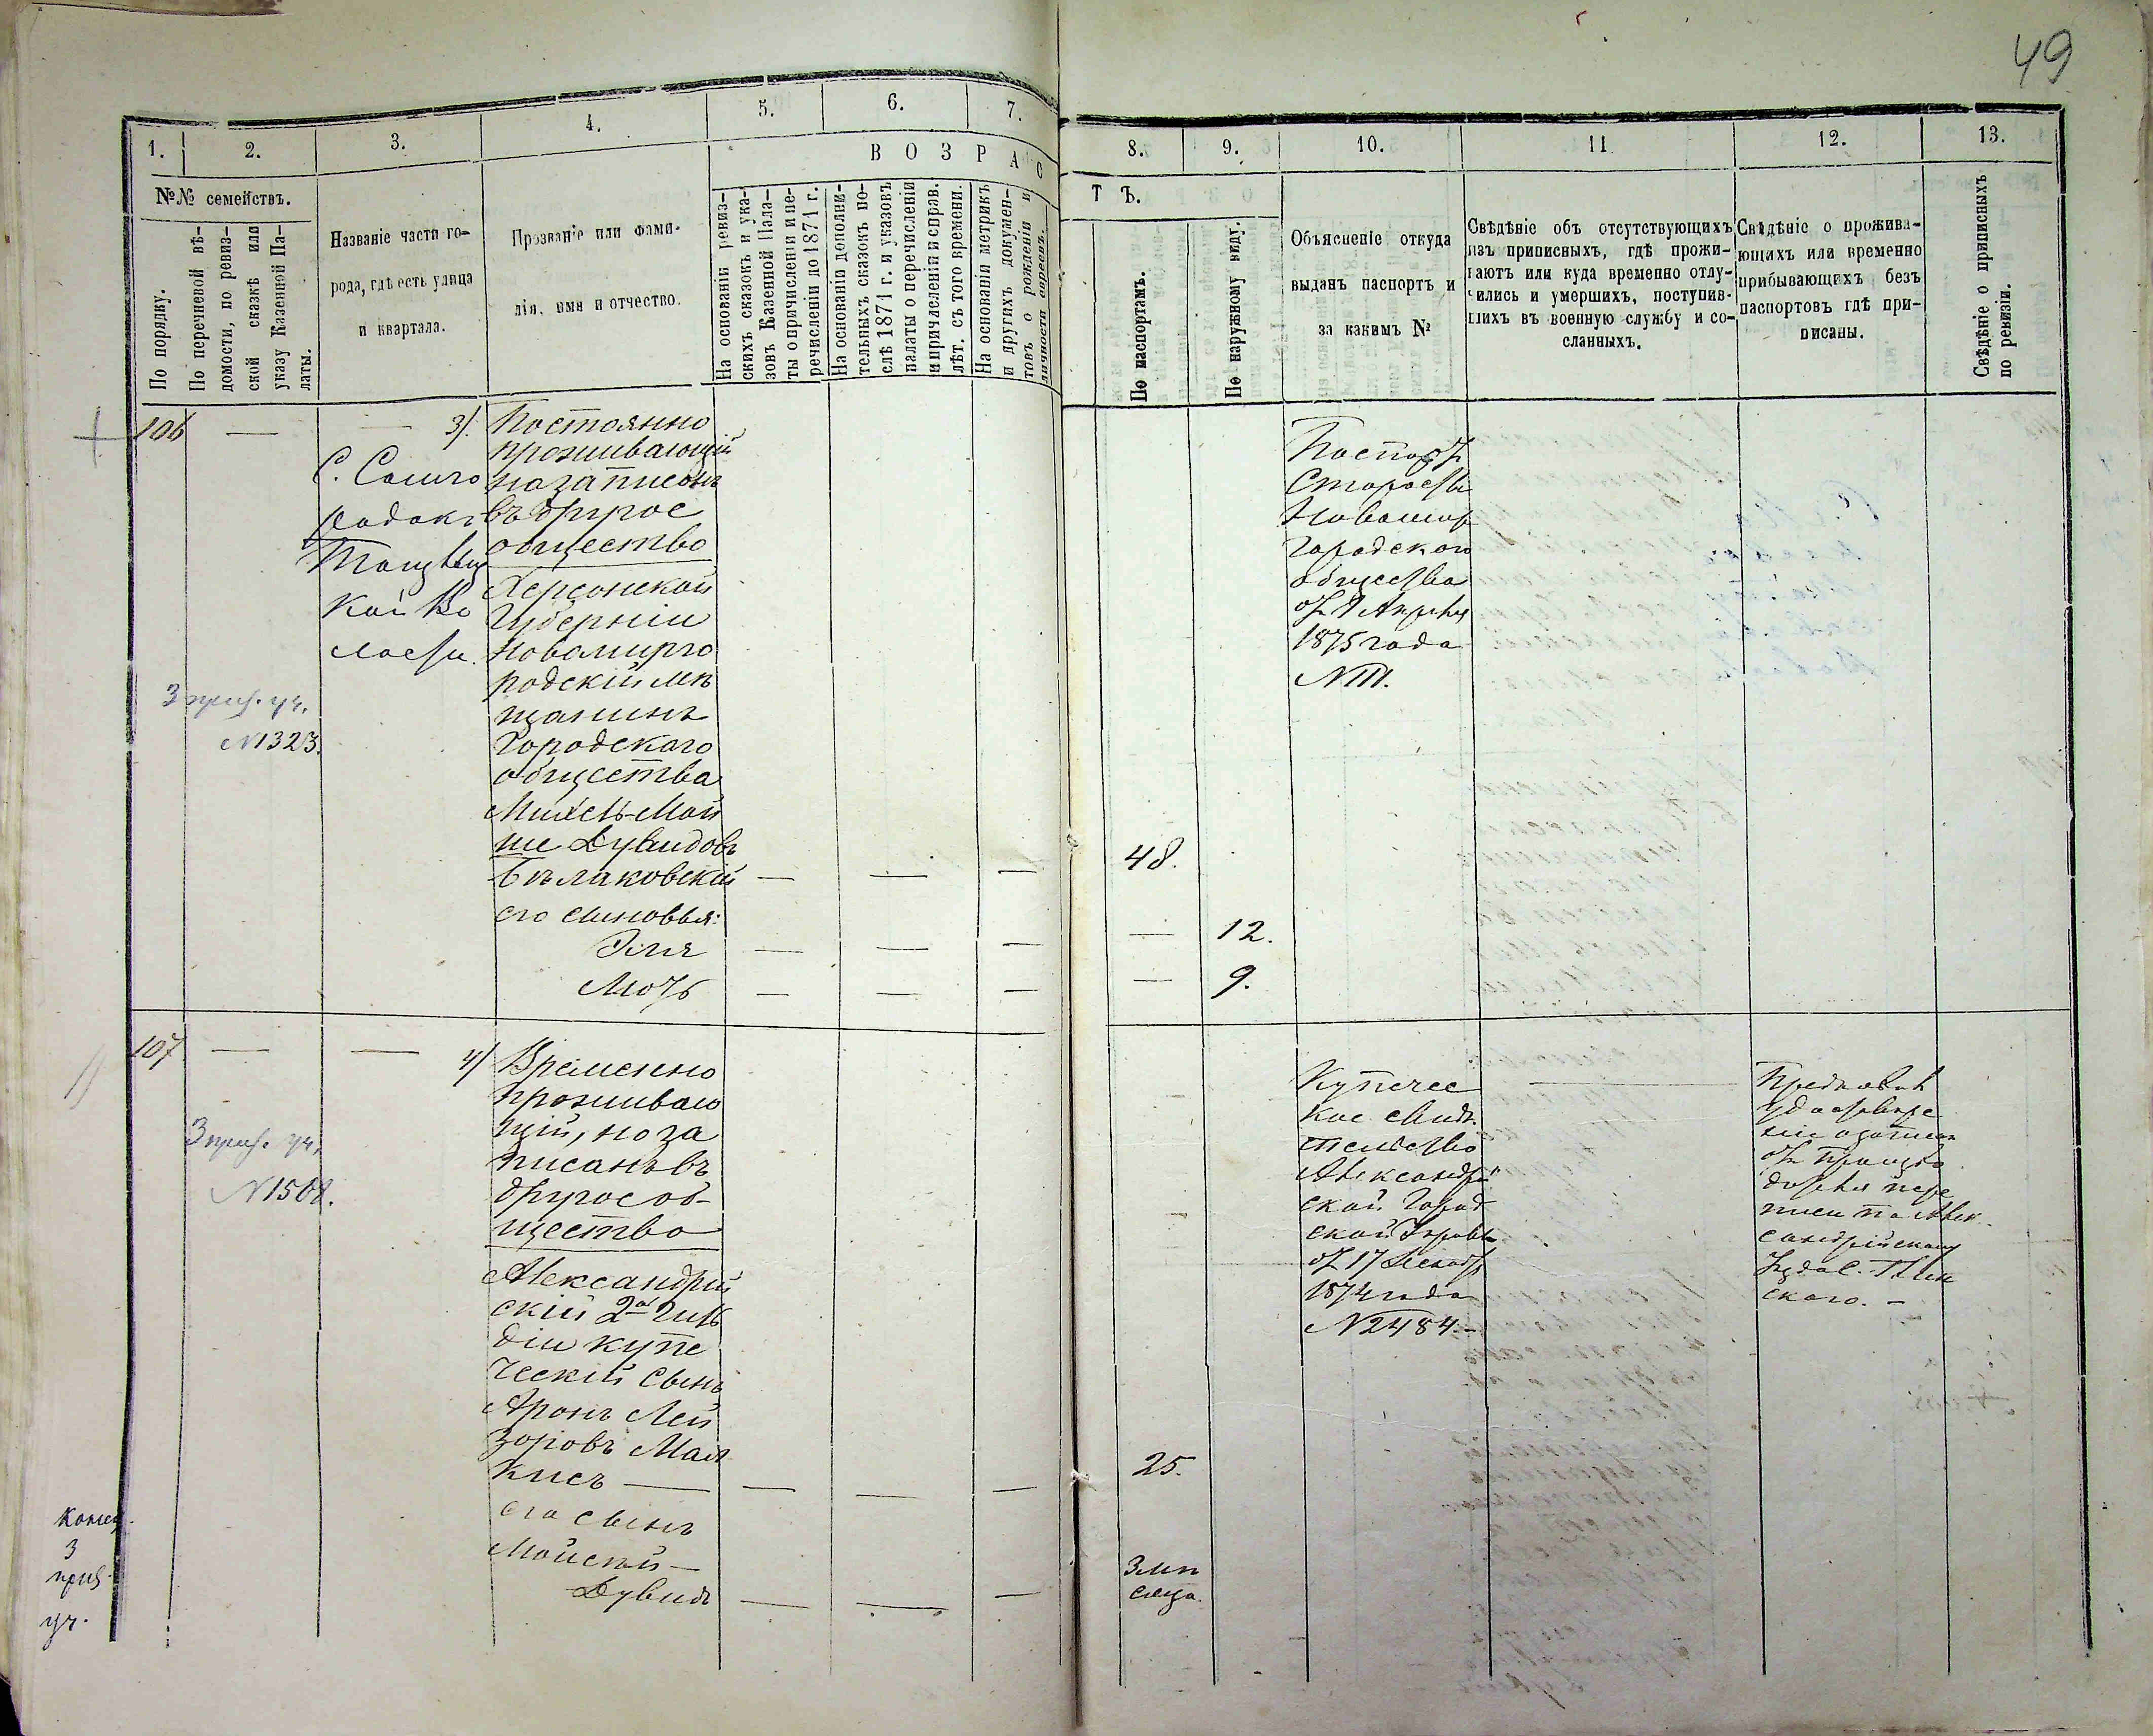 49
1.
2.
3.
4.
5.
6.
7.
8.
9.
10.
11
12.
13.
В О З Р А С
Т Ъ.
№№ семействъ.
По порядку.
По перечневой вѣ-
домости, по ревиз-
ской сказкѣ или
указу Казенной Па-
латы.
Названіе части го-
рода, гдѣ есть улица
и квартала.
Прозваніе или фами-
лія, имя и отчество.
На основаніи ревиз-
скихъ сказокъ и ука-
зовъ Казенной Пала-
ты о причисленіи и пе-
речисленіи до 1871 г.
На основаніи дополни-
тельныхъ сказокъ по-
слѣ 1871 г. и указовъ
палаты о перечисленіи
и причисленіи и справ.
лѣт. съ того времени.
На основаніи метрикъ
и другихъ докумен-
товъ о рожденіи и
личности евреевъ.
По паспортамъ.
По наружному виду.
Объясненіе откуда
выданъ паспортъ и
за какимъ №
Свѣдѣніе объ отсутствующихъ
изъ приписныхъ, гдѣ прожи-
ваютъ или куда временно отлу-
чились и умершихъ, поступив-
шихъ въ военную службу и со-
сланныхъ.
Свѣдѣніе о прожива-
ющихъ или временно
прибывающихъ безъ
паспортовъ гдѣ при-
писаны.
Свѣдѣніе о приписныхъ
по ревизіи.
106 — — 3).
Постоянно
проживающій
но записанъ
въ другое
общество
Херсонской
Губерніи
Новомирго
родскій мѣ
щанинъ
Городскаго
общества
Михель-Мой
ше Дувидовъ
Бѣлаковскій — — — 48.
его сыновья:
Эля — — — — 12.
Мотъ — — — — 9.
С.
кой Во
лости.
3 приз. уч.
№1323.
Паспортъ
Старосты
Новомир
Городского
общества
отъ Апрѣля
1875 года
107 — — 4/
Временно
проживаю
щій, но за
писанъ въ
другое об-
щество
Александрій
скій 2ой гиль
діи купе
ческій сынъ
Аронъ Лей
зоровъ Мал
кисъ — — — — 25.
его сынъ
Дувидъ — — — 3 мѣ
сяца.
3 приз. уч.
№1508.
Купечес
кое свидѣ
тельство
Александрій
ской Город
ской Управы
отъ 17 Декабр
1874 года
№2484.-
—
Предъявилъ
удостовѣре
ніе о записи
сандрійскому
скаго. -
3
приз.
уч.